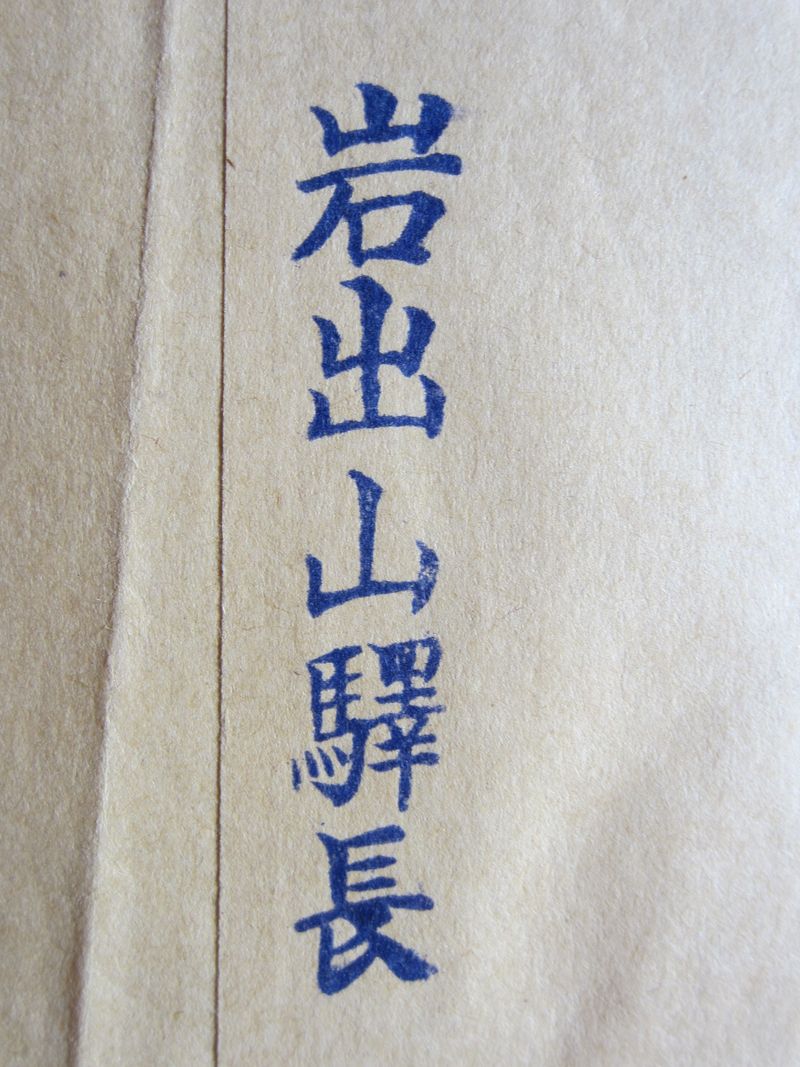 岩出山驛長